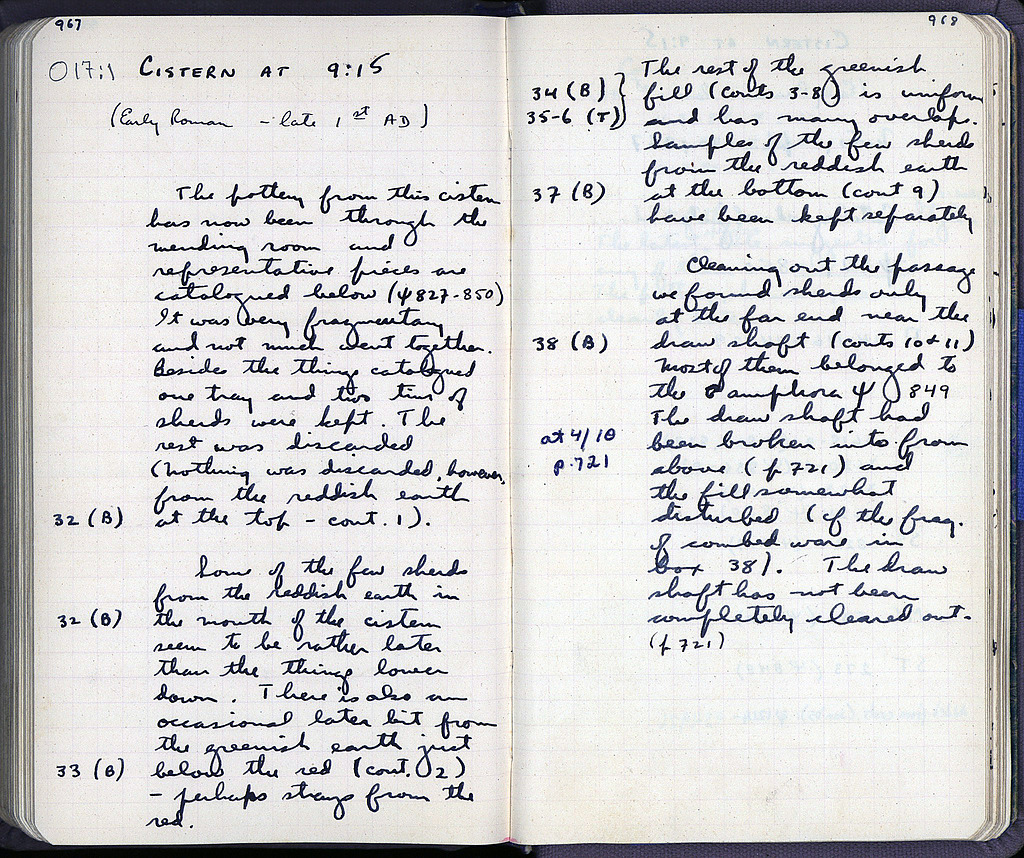 967
O17:1 CISTERN AT 9:15
(Early Roman - late 1st AD)
The pottery from this cistern
has now been through the
mending room and
representative pieces are
catalogued below (ψ827-850)
It was very fragmentary
and not much went together.
Besides the things catalogued
one tray and two tins of
sherds were kept. The
rest was discarded
(nothing was discarded, however,
from the reddish earth
32 (B) at the top - cont. 1).
Some of the few sherds
from the reddish earth in
32 (B) the mouth of the cistern
seem to be rather later
than the things lower
down. There is also an
occasional later bit from
the greenish earth just
33 (B) below the red (cont. 2)
- perhaps strays from the
red.
968
The rest of the greenish
34 (B) } fill (conts 3-8) is uniform
35-6 (T) and has many overlaps.
Samples of the few sherds
from the reddish earth
37 (B) at the bottom (cont 9)
have been kept separately
Cleaning out the passage
we found sherds only
at the far end near the
38 (B) draw shaft (conts 10+11)
Most of them belonged to
the amphora ψ 849
The draw shaft had
at 4/10 been broken into from
p.721 above (p 721) and
the fill somewhat
disturbed (cf the frag.
of combed ware in
box 38). The draw
shaft has not been
completely cleared out.
(p 721)